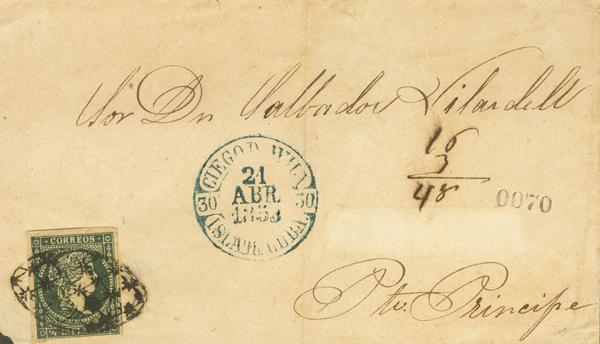 Sor Dn Salbador Vilardell
CIEGO D. WILA
21
ABR
30 30
ISLA DE CUBA.
16
3
48
0070
CORREOS
Pto. Principe